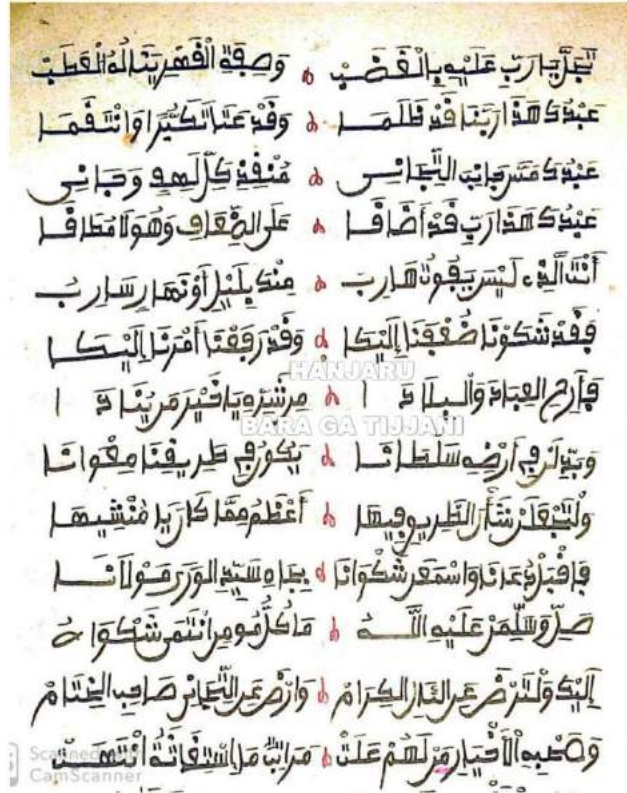 تَجَلَّ يَا رَبِّ عَلَيْهِ بِالْغَضَبْ ۞ وَصِفَةِ الْقَهْرِ يَنَالُهُ الْعَطَبْ
عَبْدُكَ هَذَا رَبَّنَا قَدْ ظَلَمَا ۞ وَقَدْ عَتَا تَكَبُّرًا وَانْتَقَمَا
عَبْدُكَ مَسَّ جَانِبَ التِّجَانِي ۞ مُنْقِذِ كُلِّ لَهِفٍ وَجَانِي
عَبْدُكَ هَذَا رَبِّ قَدْ أَضَافَا ۞ عَلَى الضِّعَافِ وَهُوَ لَا
أَنْتَ الَّذِي لَيْسَ يَفُوتُ هَارِبُ ۞ مِنْكَ بِلَيْلٍ أَوْ نَهَارٍ سَارِبُ
فَقَدْ شَكَوْنَا ضُعْفَنَا إِلَيْكَا ۞ وَقَدْ رَفَعْنَا أَمْرَنَا إِلَيْكَا
HANJARU
فَأَرِحِ الْعِبَادَ وَالْبِلَادَا ۞ مِنْ شَرِّهِ يَا خَيْرَ مَنْ يُنَادَا
BARA GA TIJJANI
وَبَدِّلَنْ فِي أَرْضِهِ سُلْطَانَا ۞ يَكُونُ فِي طَرِيقِنَا مِعْوَانَا
وَلْتَجْعَلَنْ شَأْنَ الطَّرِيقِ فِيهَا ۞ أَعْظَمَ مِمَّا كَانَ يَا مُنْشِيهَا
فَاقْبَلْ دُعَانَا وَاسْمَعَنْ شَكْوَانَا ۞ بِجَاهِ سَيِّدِ الْوَرَى مَوْلَانَا
صَلِّ وَسَلِّمَنْ عَلَيْهِ اللَّهُ ۞ مَا كُلُّ مُومِنٍ انْتَهَى شَكْوَاهُ
إِلَيْكَ وَلْتَرْضَ عَنِ الْآلِ الْكِرَامْ ۞ وَارْضَ عَنِ التِّجَانِي صَاحِبِ الْخِتَامْ
وَصَحْبِهِ الْأَخْيَارِ مَنْ لَهُمْ عَلَتْ ۞ مَرَاتِبٌ مَا اسْتِغَاثَةُ انْتَهَتْ
Scanned with
CamScanner